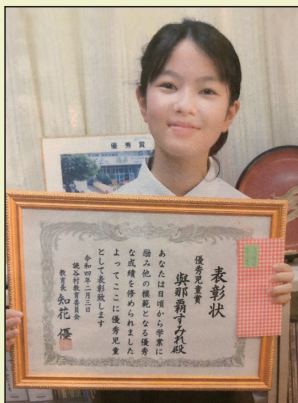 優秀賞
表彰状
優秀児童賞
與那覇すみれ殿
あなたは日頃から学業に
励み他の模範となる優秀
な成績を修められました
よってここに優秀児童
として表彰致します
令和四年二月三日
読谷村教育委員会
教育長 知花優